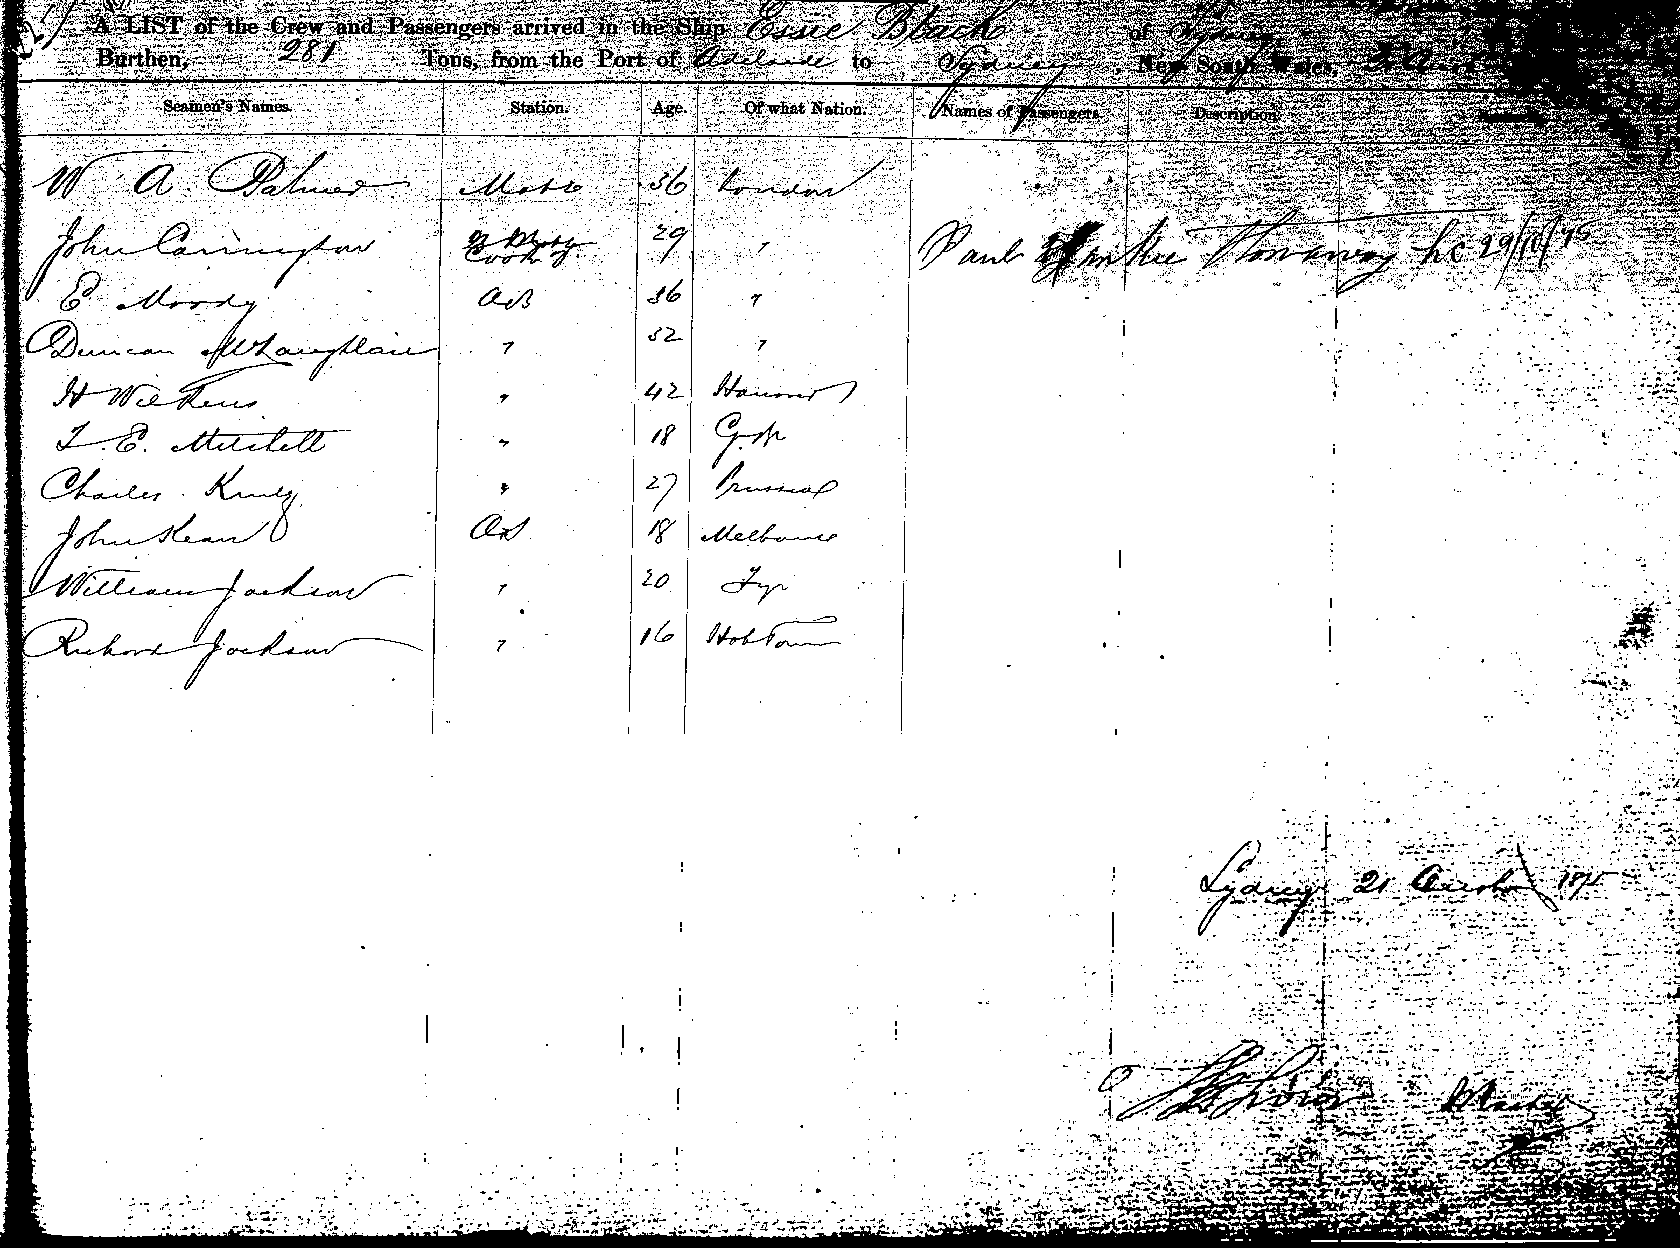 A LIST of the Crew and Passengers arrived in the Ship Essie Black of Sydney
Burthen, 281 Tons, from the Port of Adelaide to Sydney, New South Wales,
Seamen's Names. Station. Age. Of what Nation. Names of Passengers. Description
W A Palmer Mate 36 London
John Carrington Cook 29 "
Paul Stowaway 29/10/75
E Moody AB 36 "
Duncan McLaughlan " 32 "
H Wilkens " 42 Hanover
T. E. Mitchell " 18
Charles " 27 Prussia
John Kean OS 18 Melbourne
William Jackson " 20
Richard Jackson " 16 Hob Town
Sydney 21 1875
Master